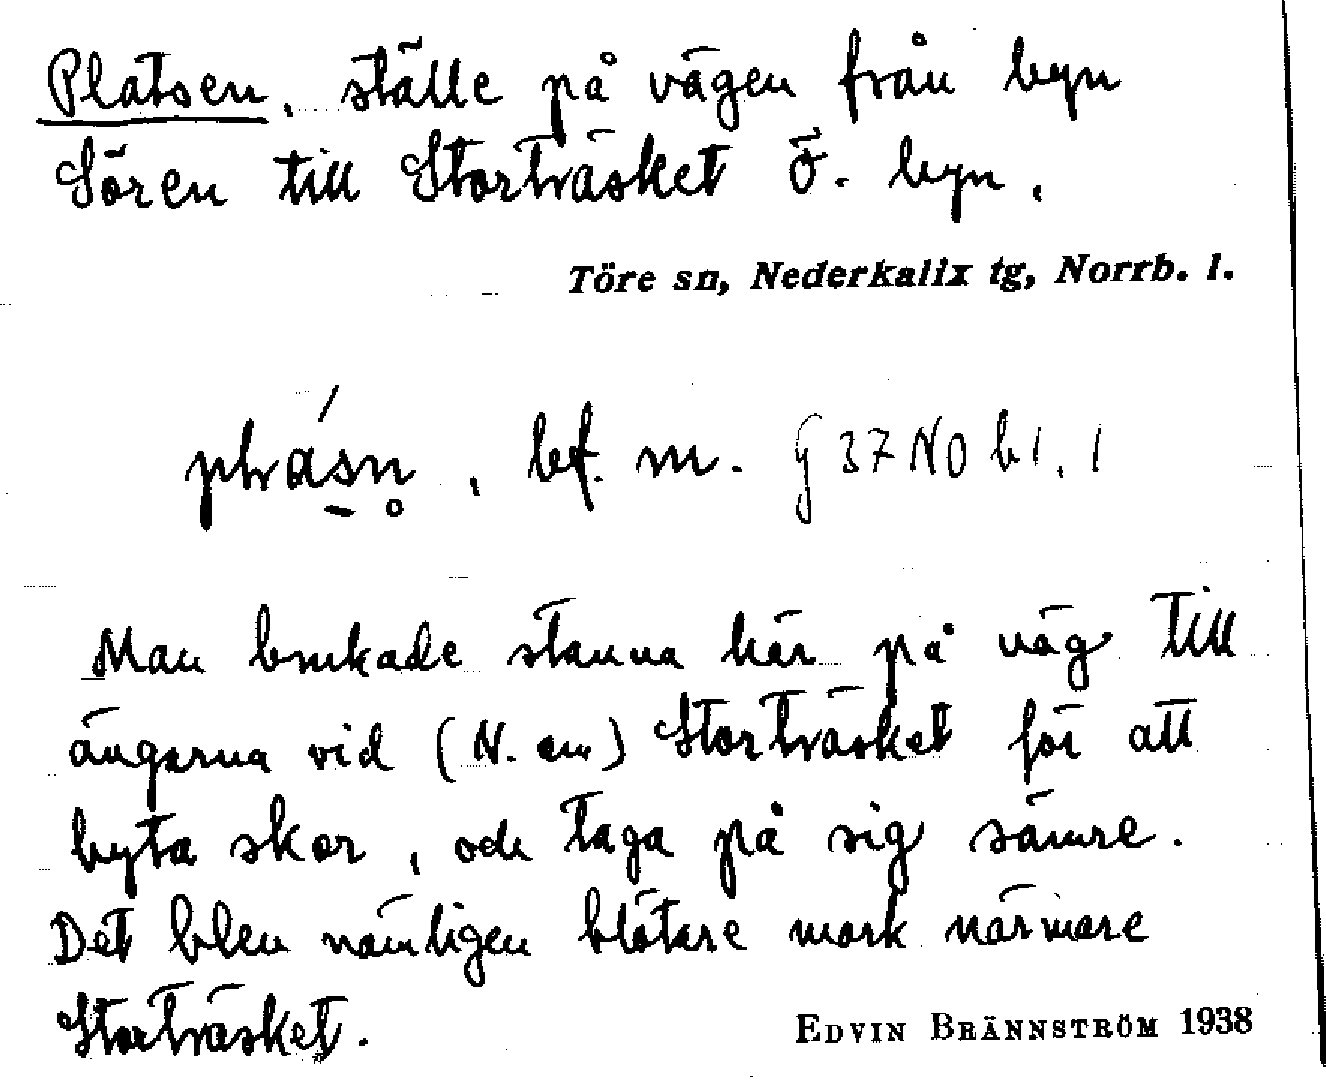 Platsen, ställe på vägen från byn
Sören till Storträsket Ö. byn.
Töre sn, Nederkalix tg, Norrb. l.
bf. m. G 37 NO b1. 1
Man brukade stanna här på väg till
ängarna vid (N. om) Storträsket för att
byta skor, och taga på sig sämre.
Det blev nämligen blötare mark närmare
Storträsket.
EDVIN BRÄNNSTRÖM 1938